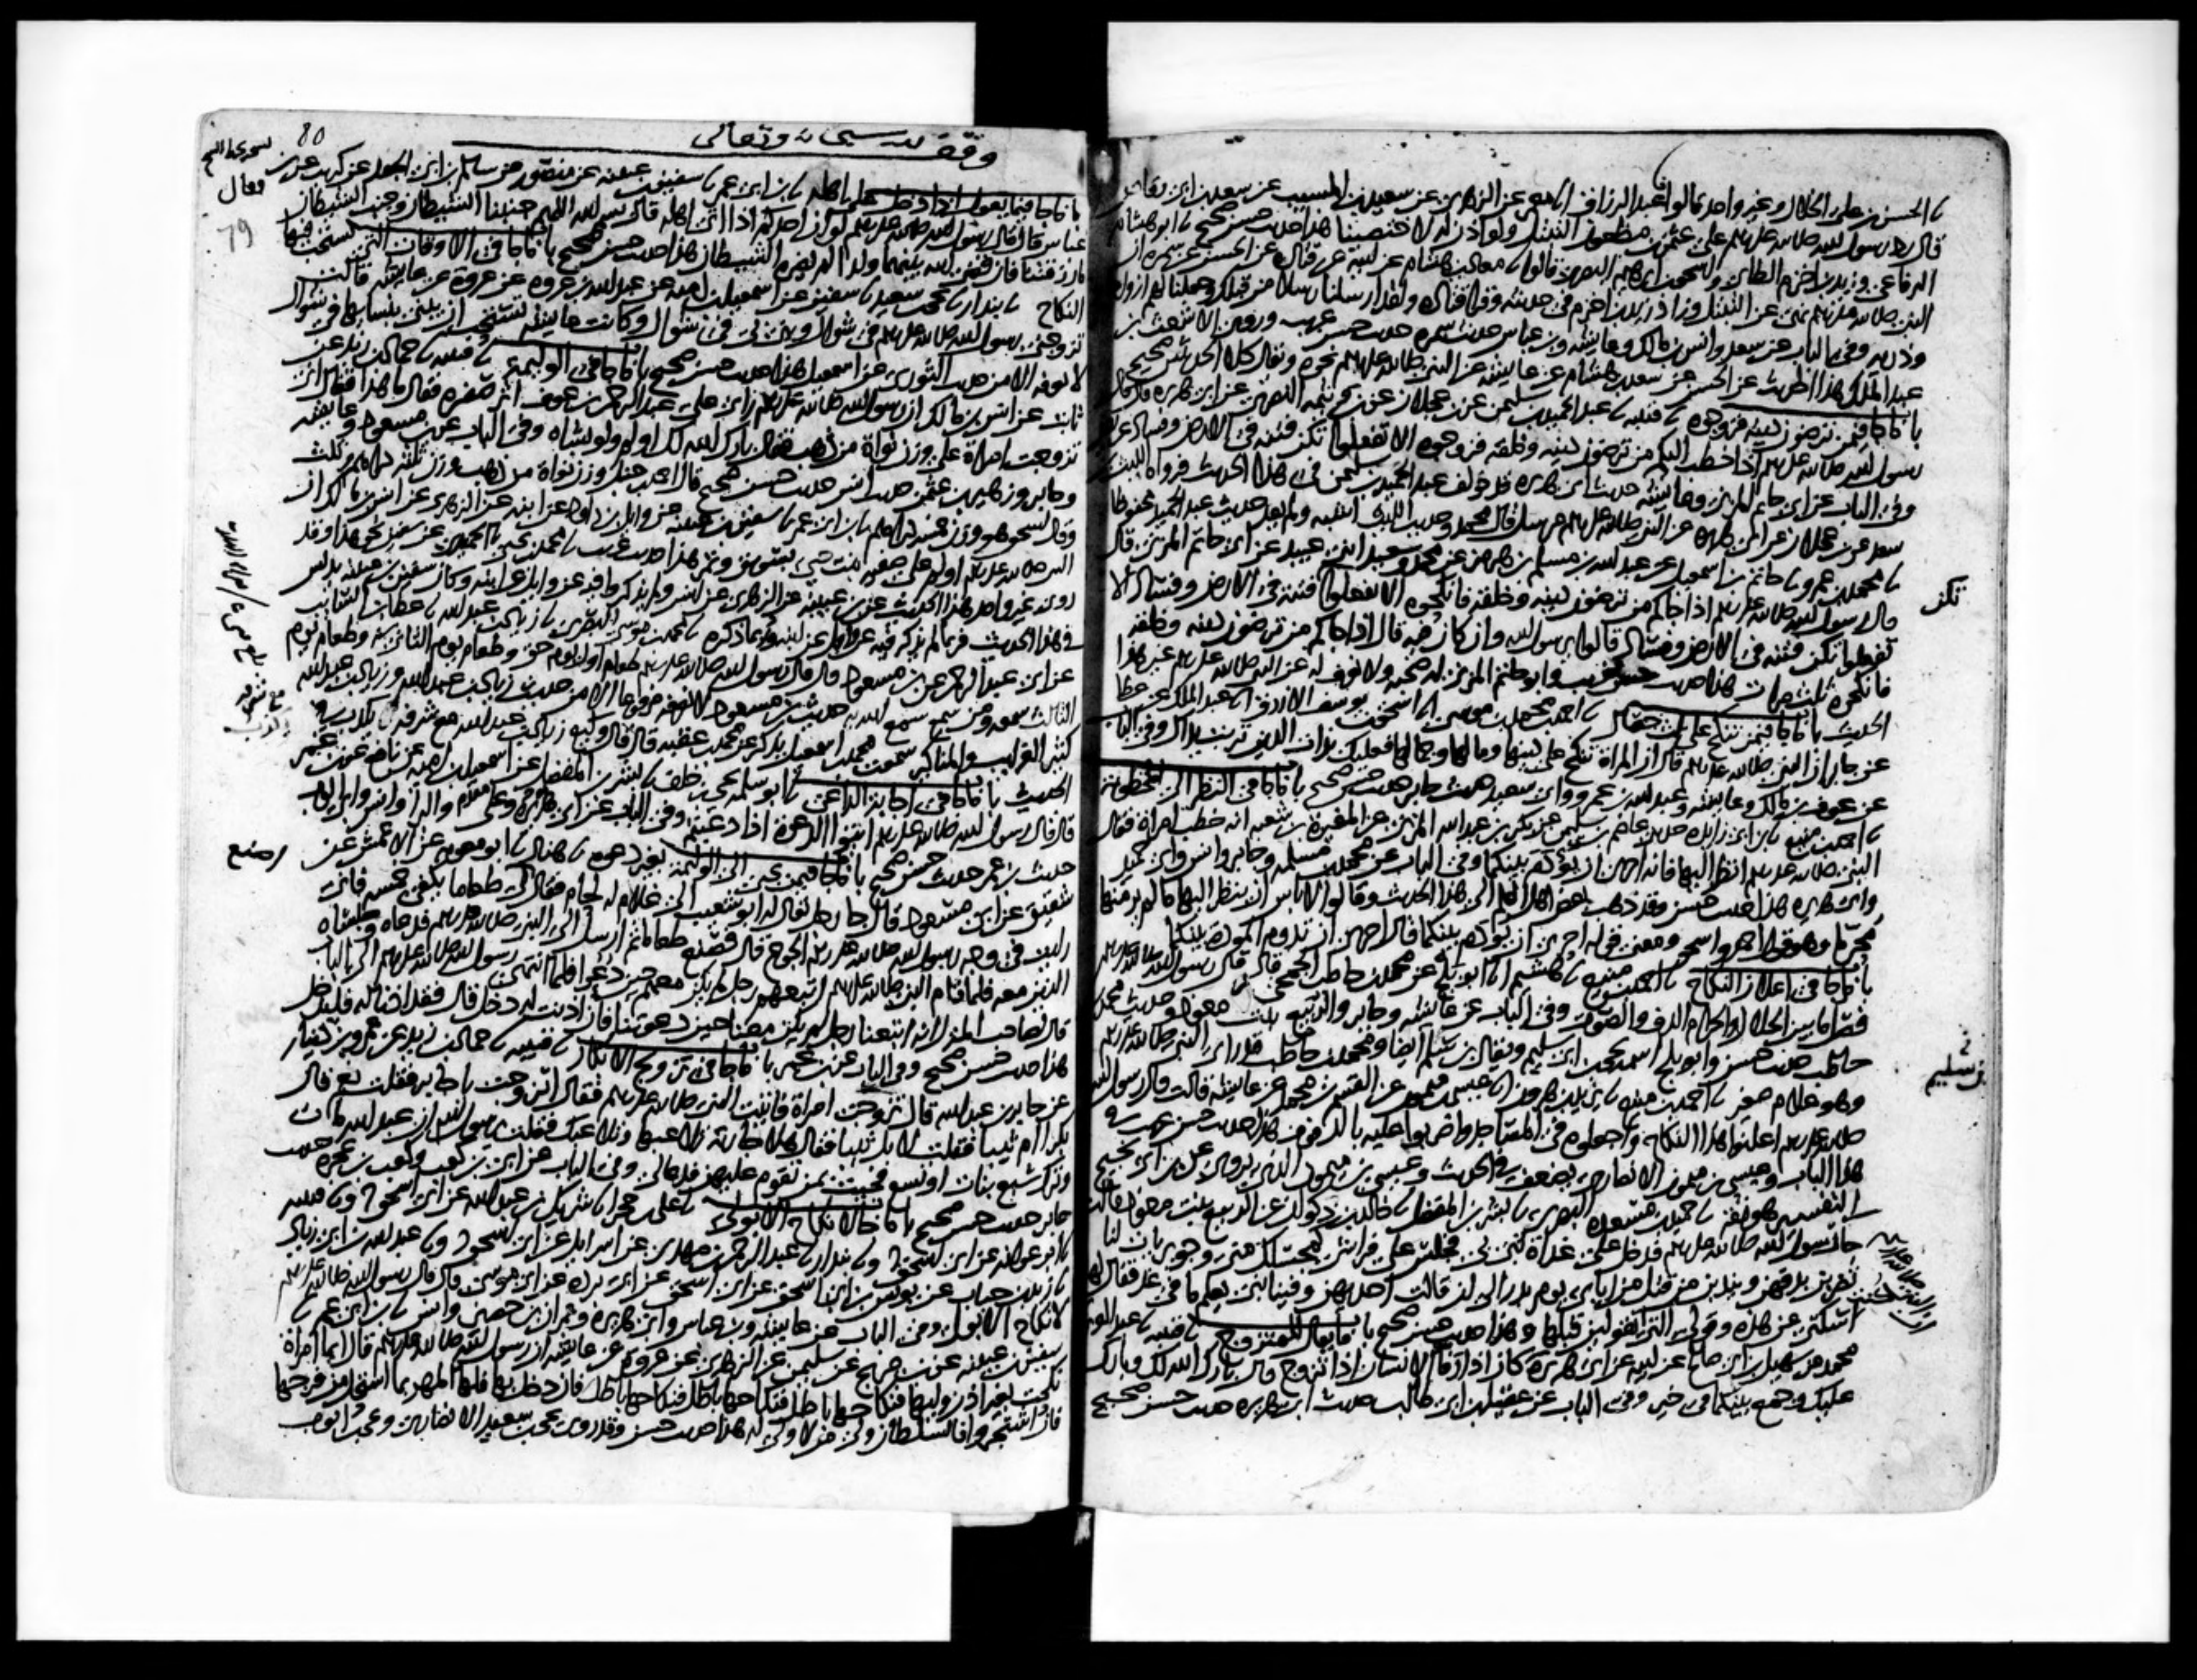 نا الحسن بن علي الخلال وغير واحد قالوا نا عبد الرزاق انا معمر عن الزهري عن سعيد بن المسيب عن سعد بن ابي وقاص
قال رد رسول الله صلى الله عليه وسلم على عثمن بن مظعون التبتل ولو اذن له لاختصينا هذا حديث حسن صحيح نا ابو هشام
الرفاعي وزيد بن اخزم الطائي واسحق بن ابرهيم البصري قالوا نا معاذ بن هشام عن ابيه عن قتادة عن الحسن عن سمرة ان
النبي صلى الله عليه وسلم نهى عن التبتل وزاد زيد بن اخزم في حديثه وقرا قتادة ولقد ارسلنا رسلا من قبلك وجعلنا لهم ازواجا
وذرية وفي الباب عن سعد وانس بن مالك وعايشة وبن عباس حديث سمرة حديث حسن غريب وروى الاشعث بن
عبد الملك هذا الحديث عن الحسن عن سعد بن هشام عن عايشة عن النبي صلى الله عليه وسلم نحوه ويقال كلا الحديثين صحيح
باب ما جا فيمن ترضون دينه فزوجوه نا قتيبة نا عبد الحميد بن سليمن عن بن عجلان عن بن وثيمة النصري عن ابي هريرة قال قال
رسول الله صلى الله عليه وسلم اذا خطب اليكم من ترضون دينه وخلقه فزوجوه الا تفعلوا تكن فتنة في الارض وفساد عريض
وفي الباب عن ابي حاتم المزني وعايشة حديث ابي هريرة قد خولف عبد الحميد بن سليمن في هذا الحديث فرواه الليث بن
سعد عن بن عجلان عن ابي هريرة عن النبي صلى الله عليه وسلم مرسل قال محمد وحديث الليث اشبه ولم يعد حديث عبد الحميد محفوظا
نا محمد بن عمرو نا حاتم بن اسمعيل عن عبد الله بن مسلم بن هرمز عن محمد وسعيد ابني عبيد عن ابي حاتم المزني قال
قال رسول الله صلى الله عليه وسلم اذا جاكم من ترضون دينه وخلقه فانكحوه الا تفعلوا فتنة في الارض وفساد الا
تكن
تفعلوا تكن فتنة في الارض وفساد قالوا يرسول الله وان كان فيه قال اذا جاكم من ترضون دينه وخلقه
فانكحوه ثلث مرات هذا حديث حسن غريب وابو حاتم المزني له صحبة ولا نعرف له عن النبي صلى الله عليه وسلم غير هذا
الحديث باب ما جا فيمن ينكح على ثلث خصال نا احمد بن محمد بن موسى انا اسحق بن يوسف الازرق نا عبد الملك عن عطا
عن جابر ان النبي صلى الله عليه وسلم قال ان المراة تنكح على دينها ومالها وجمالها فعليك بذات الدين تربت يداك وفي الباب
عن عوف بن مالك وعايشة وعبد الله بن عمرو وابي سعيد حديث جابر حديث حسن صحيح باب ما جا في النظر الى المخطوبة
نا احمد بن منيع نا بن ابي زايدة حدثني عاصم بن سليمن عن بكر بن عبد الله المزني عن المغيرة بن شعبة انه خطب امراة فقال
النبي صلى الله عليه وسلم انظر اليها فانه احرى ان يؤدم بينكما وفي الباب عن محمد بن مسلمة وجابر وانس وابي حميد
وابي هريرة هذا حديث حسن وقد ذهب بعض اهل العلم الى هذا الحديث وقالوا لا باس ان ينظر اليها ما لم ير منها
محرما وهو قول احمد واسحق ومعنى قوله احرى ان يؤدم بينكما قال احرى ان تدوم المودة بينكما
باب ما جا في اعلان النكاح نا احمد بن منيع نا هشيم انا ابو بلج عن محمد بن حاطب الجمحي قال قال رسول الله صلى الله عليه وسلم
فصل ما بين الحلال والحرام الدف والصوت وفي الباب عن عايشة وجابر والربيع بنت معوذ وحديث محمد بن
حاطب حديث حسن وابو بلج اسمه يحيى بن ابي سليم ويقال بن سليم ايضا ومحمد بن حاطب قد راى النبي صلى الله عليه وسلم
بن سليم
وهو غلام صغير نا احمد بن منيع نا يزيد بن هرون نا عيسى بن ميمون عن القسم بن محمد عن عايشة قالت قال رسول الله
صلى الله عليه وسلم اعلنوا هذا النكاح واجعلوه في المساجد واضربوا عليه بالدفوف هذا حديث حسن غريب في
هذا الباب وعيسى بن ميمون الانصاري يضعف في الحديث وعيسى بن ميمون الذي يروي عن بن ابي نجيح
التفسير هو ثقة نا حميد بن مسعدة البصري نا بشر بن المفضل نا خالد بن ذكوان عن الربيع بنت معوذ قالت
جا رسول الله صلى الله عليه وسلم فدخل علي غداة بني بي فجلس على فراشي كمجلسك مني وجويريات لنا
يضربن بدفهن ويندبن من قتل من ابائي يوم بدر الى ان قالت احداهن وفينا نبي يعلم ما في غد فقال لها
اسكتي عن هذه وقولي التي تقولين قبلها وهذا حديث حسن صحيح باب ما يقال للمتزوج نا قتيبة نا عبد العزيز
محمد عن سهيل بن ابي صالح عن ابيه عن ابي هريرة كان اذا رفا الانسان اذا تزوج قال بارك الله لك وبارك
عليك وجمع بينكما في خير وفي الباب عن عقيل بن ابي طالب حديث ابي هريرة حديث حسن صحيح
وقف لله سبحانه وتعالى
80
79
باب ما جا فيما يقول اذا دخل على اهله نا بن ابي عمر نا سفين بن عيينة عن منصور عن سالم بن ابي الجعد عن كريب عن بن
عباس قال قال رسول الله صلى الله عليه وسلم لو ان احدكم اذا اتى اهله قال بسم الله اللهم جنبنا الشيطان وجنب الشيطان
ما رزقتنا فان قضى الله بينهما ولدا لم يضره الشيطان هذا حديث حسن صحيح باب ما جا في الاوقات التي يستحب فيها
النكاح نا بندار نا يحيى بن سعيد نا سفين عن اسمعيل بن امية عن عبد الله بن عروة عن عروة عن عايشة قالت
تزوجني رسول الله صلى الله عليه وسلم في شوال وبنى بي في شوال وكانت عايشة تستحب ان يبنى بنسايها في شوال
لا نعرفه الا من حديث الثوري عن اسمعيل هذا حديث حسن صحيح باب ما جا في الوليمة نا قتيبة نا حماد بن زيد عن
ثابت عن انس بن مالك ان رسول الله صلى الله عليه وسلم راى على عبد الرحمن بن عوف اثر صفرة فقال ما هذا فقال اني
تزوجت امراة على وزن نواة من ذهب فقال بارك الله لك اولم ولو بشاة وفي الباب عن بن مسعود وعايشة
وجابر وزهير بن عثمن حديث انس حديث حسن صحيح قال احمد بن حنبل وزن نواة من ذهب وزن ثلثة دراهم وثلث
وقال اسحق هو وزن خمسة دراهم نا بن ابي عمر نا سفين بن عيينة عن وايل بن داود عن ابنه عن الزهري عن انس بن مالك ان
النبي صلى الله عليه وسلم اولم على صفية بنت حيي بسويق وتمر هذا حديث غريب نا محمد بن يحيى نا الحميدي عن سفين نحو هذا وقد
روى غير واحد هذا الحديث عن بن عيينة عن الزهري عن انس ولم يذكروا فيه عن وايل عن ابنه وكان سفين بن عيينة يدلس
في هذا الحديث فربما لم يذكر فيه عن وايل عن ابنه وربما ذكره نا محمد بن موسى البصري نا زياد بن عبد الله نا عطا بن السايب
عن ابي عبد الرحمن عن بن مسعود قال قال رسول الله صلى الله عليه وسلم طعام اول يوم حق وطعام يوم الثاني سنة وطعام يوم
الثالث سمعة ومن سمع سمع الله به حديث بن مسعود لا نعرفه مرفوعا الا من حديث زياد بن عبد الله وزياد بن عبد الله
كثير الغرايب والمناكير سمعت محمد بن اسمعيل يذكر عن محمد بن عقبة قال قال وكيع زياد بن عبد الله مع شرفه يكذب في
الحديث باب ما جا في اجابة الداعي نا ابو سلمة يحيى بن خلف نا بشر بن المفضل عن اسمعيل بن امية عن نافع عن بن عمر
قال قال رسول الله صلى الله عليه وسلم ايتوا الدعوة اذا دعيتم وفي الباب عن علي وابي هريرة والبرا وانس وابي ايوب
حديث بن عمر حديث حسن صحيح باب ما جا فيمن يجي الى الوليمة بغير دعوة نا هناد نا ابو معوية عن الاعمش عن
شقيق عن ابي مسعود قال جا رجل يقال له ابو شعيب الى غلام له لحام فقال لي طعاما يكفي خمسة فاني
اصنع
رايت في وجه رسول الله صلى الله عليه وسلم الجوع قال فصنع طعاما ثم ارسل الى النبي صلى الله عليه وسلم فدعاه وجلساه
الذين معه فلما قام النبي صلى الله عليه وسلم اتبعهم رجل لم يكن معهم حين دعوا فلما انتهى رسول الله صلى الله عليه وسلم الى الباب
قال لصاحب المنزل انه اتبعنا رجل لم يكن معنا حين دعوتنا فان اذنت له دخل قال فقد اذنا له فليدخل
هذا حديث حسن صحيح وفي الباب عن بن عمر باب ما جا في تزويج الابكار نا قتيبة نا حماد بن زيد عن عمرو بن دينار
عن جابر بن عبد الله قال تزوجت امراة فاتيت النبي صلى الله عليه وسلم فقال اتزوجت يا جابر فقلت نعم قال
بكرا ام ثيبا فقلت لا بل ثيبا فقال هلا جارية تلاعبها وتلاعبك فقلت يرسول الله ان عبد الله مات
وترك سبع بنات او تسع فجيت بمن تقوم عليهن فدعا لي وفي الباب عن ابي بن كعب وكعب بن عجرة حديث
جابر حديث حسن صحيح باب ما جا لا نكاح الا بولي نا علي بن حجر نا شريك بن عبد الله عن ابي اسحق ونا قتيبة
نا ابو عوانة عن ابي اسحق ونا بندار نا عبد الرحمن بن مهدي عن اسرايل عن ابي اسحق ونا عبد الله بن ابي زياد
نا زيد بن حباب عن يونس بن ابي اسحق عن ابي اسحق عن ابي بردة عن ابي موسى قال قال رسول الله صلى الله عليه وسلم
لا نكاح الا بولي وفي الباب عن عايشة وبن عباس وابي هريرة وعمران بن حصين وانس نا بن ابي عمر نا
سفين بن عيينة عن بن جريج عن سليمن عن الزهري عن عروة عن عايشة ان رسول الله صلى الله عليه وسلم قال ايما امراة
نكحت بغير اذن وليها فنكاحها باطل فنكاحها باطل فنكاحها باطل فان دخل بها فلها المهر بما استحل من فرجها
فان اشتجروا فالسلطان ولي من لا ولي له هذا حديث حسن وقد روى يحيى بن سعيد الانصاري ويحيى بن ايوب